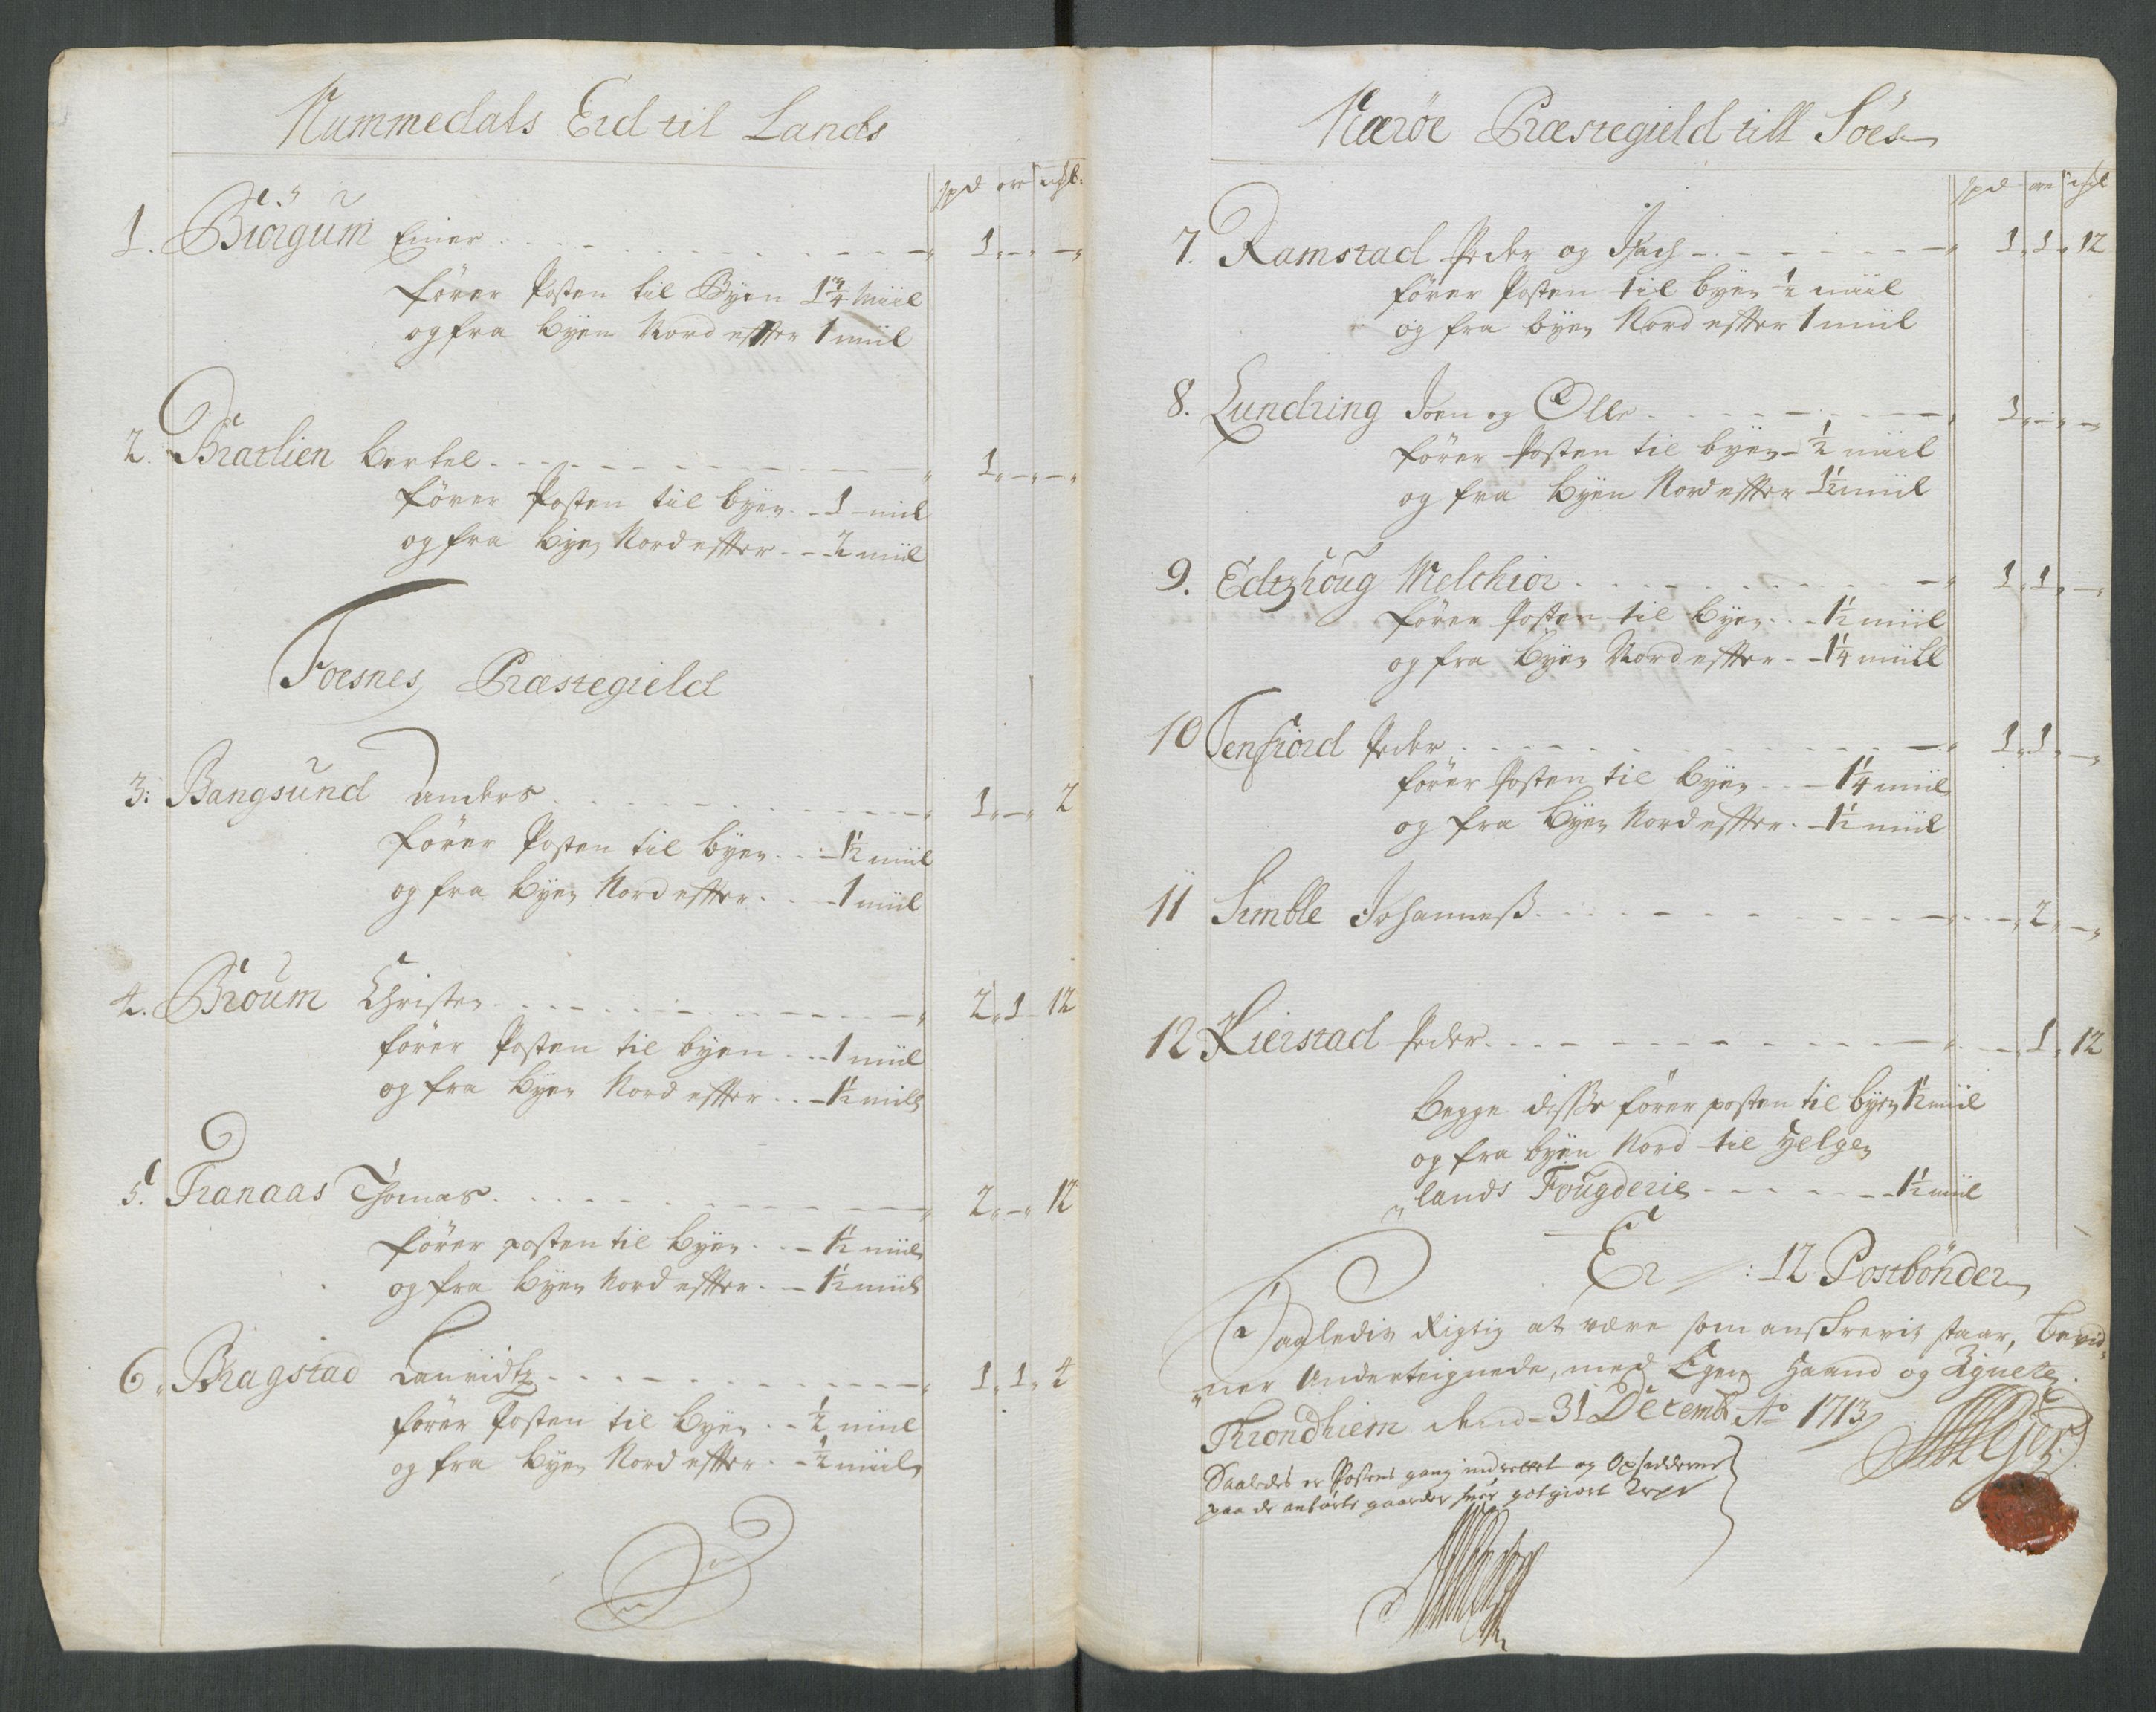 Nummedals Eid til Lands
spd ort schl:
1. Biörgum Einer 1 - -
fører Posten til Byen 1 3/4 Miil
og fra byen Nord effter 1 miil
2. Bratlien Bertel 1 - -
fører Posten til byen 1 miil
og fra byen Nord effter 2 miil
Foesnes Præstegield
3: Bangsund Anders 1 - 2
fører Posten til byen 1 1/2 miil
og fra byen Nord effter 1 miil
4. Broum Christen 2 1 12
fører Posten til byen 1 miil
og fra byen Nord effter 1 1/2 miil
5. Tranaas Thomas 2 - 12
fører posten til byen 1/2 miil
og fra byen Nord effter 1 1/2 miil
6. Bragstad Lauridtz 1 1 4
fører Posten til byen 1/2 miil
og fra byen Nord effter 1/2 miil
Nærøe Præstegield till Söes
spd ort schl
7. Ramstad Peder og Isach 1 1 12
fører Posten til byen 1/2 miil
og fra byen Nord effter 1 miil
8. Lundring Joen og Olle 1 - -
fører Posten til byen 1/2 miil
og fra byen Nord effter 1 1/2 miil
9. Edtzhoug Melchior 1 1 -
fører Posten til byen 1 1/2 miil
og fra byen Nord effter 1 1/4 miill
10 Tenfiord Peder 1 1 -
fører Posten til byen 1 1/4 miil
og fra byen Nord effter 1 1/2 miil
11 Simble Johanneß - 2 -
12 Kierstad Peder - 1 12
Begge disse fører posten til byen 1 1/2 miil
og fra byen Nord til Helge
lands Fougderie 1 1/2 miil
Er 12 Postbönder
Saaledis Rigtig at være som anskrevit staar, bevid
ner Underteignede, med Egen Haand og Zignete.
Trondhiem dend 31 Decembr Ao 1713
Saaledes er Postens gang indrettet og Opsidderne
paa de anførte gaarder